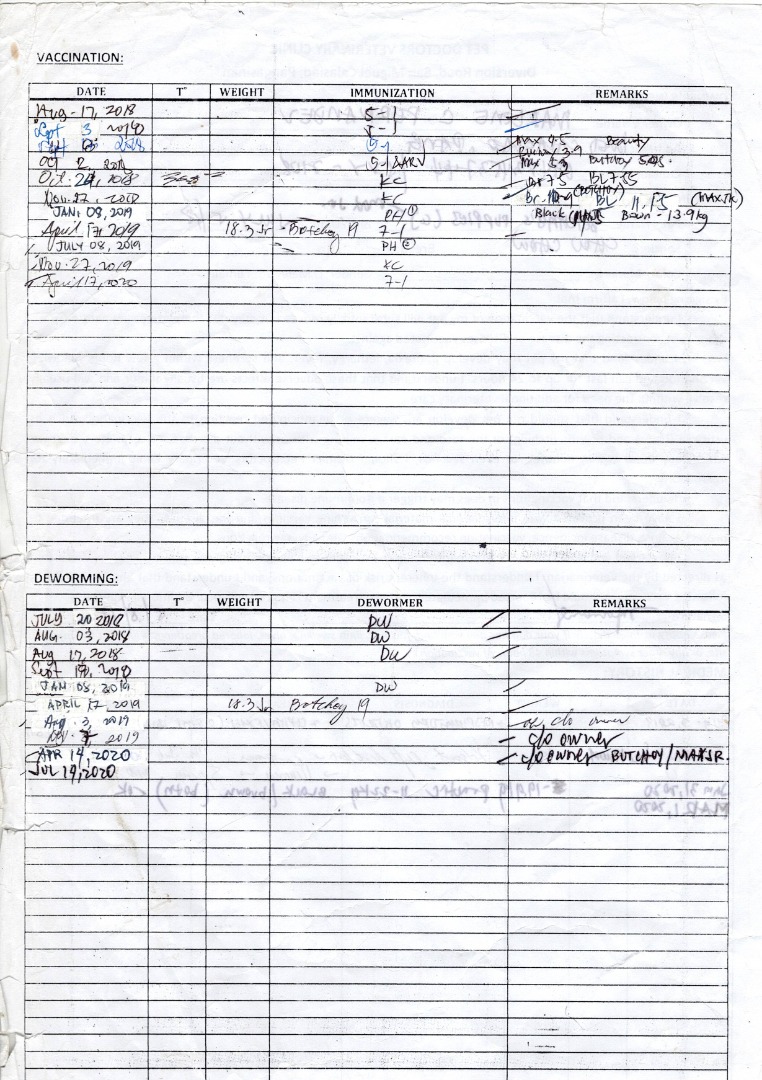 VACCINATION:
DATE T° WEIGHT IMMUNIZATION REMARKS
Aug. 17, 2018 5-1
Sept 3 2018 5-1
Sept 2018 5-1 Max 4.5 Beauty
Oct 2, 2018 (5-1 &ARV Max 5.9 Butchoy 5.45.
Oct. 24, 2018 KC 7.5 BL 7.55
Nov. 27, 2018 KC Br. (BUTCHOY) BL 11.15 (MAXJR)
JAN. 08, 2019 PH ① Black Bown - 13.9 kg
April 17, 2019 18.3 Jr - Botchoy 19 7-1
JULY 08, 2019 PH ②
Nov. 27, 2019 KC
April 17, 2020 7-1
DEWORMING:
DATE T° WEIGHT DEWORMER REMARKS
JULY 20 2018 DW
AUG. 03, 2018 DW
Aug 17, 2018 DW
Sept 2018
JAN 08, 2019 DW
APRIL 17, 2019 18.3 Jr Botchoy 19
Aug. 3, 2019 c/o owner
2019 c/o owner
APR 14, 2020 c/o owner BUTCHOY / MAXJR.
JUL 19, 2020